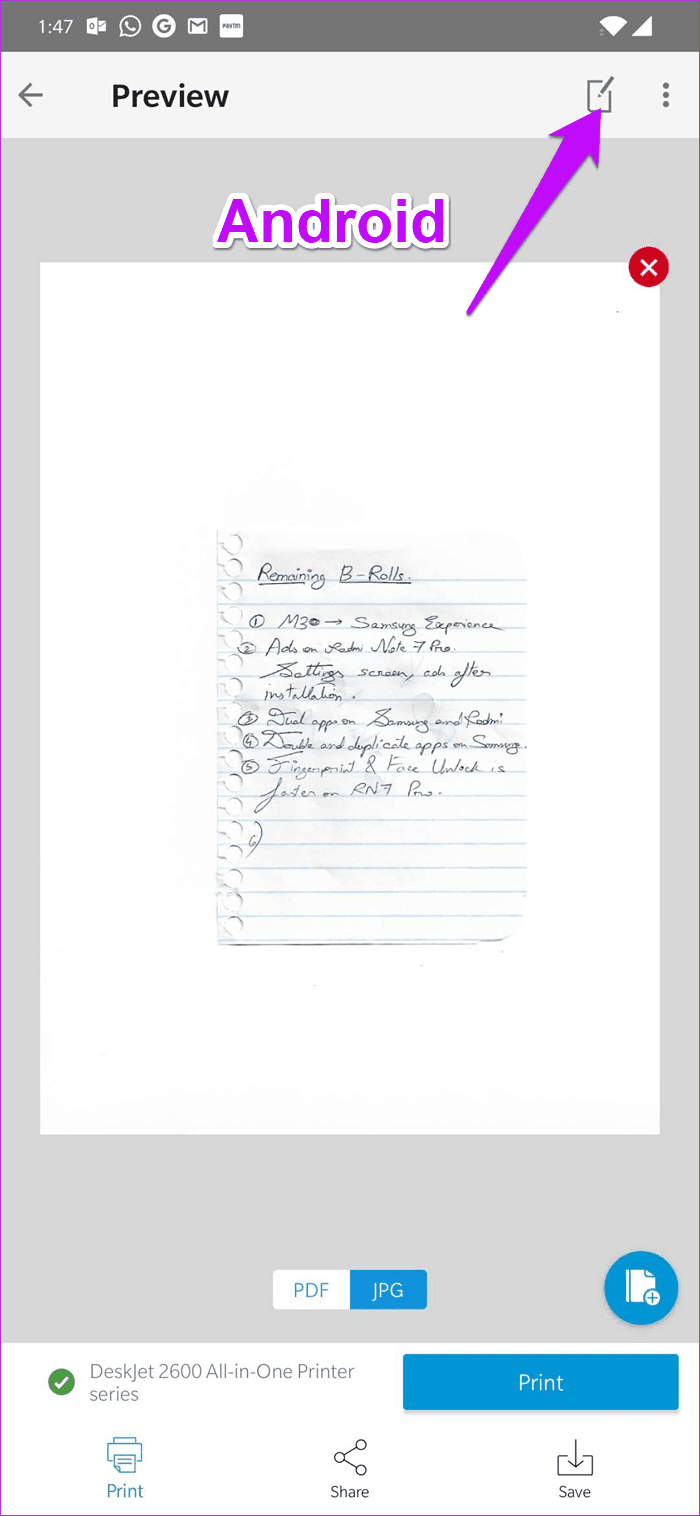 1:47 Paytm
Preview
Android
Remaining B-Rolls.
① M30 → Samsung Experience
② Ads on Redmi Note 7 Pro.
Settings screen, ads after
installation.
③ Dual apps on Samsung and Redmi
④ Double and duplicate apps on Samsung.
⑤ Fingerprint & Face Unlock is
faster on RN7 Pro.
6)
PDF JPG
DeskJet 2600 All-in-One Printer
series
Print
Print Share Save